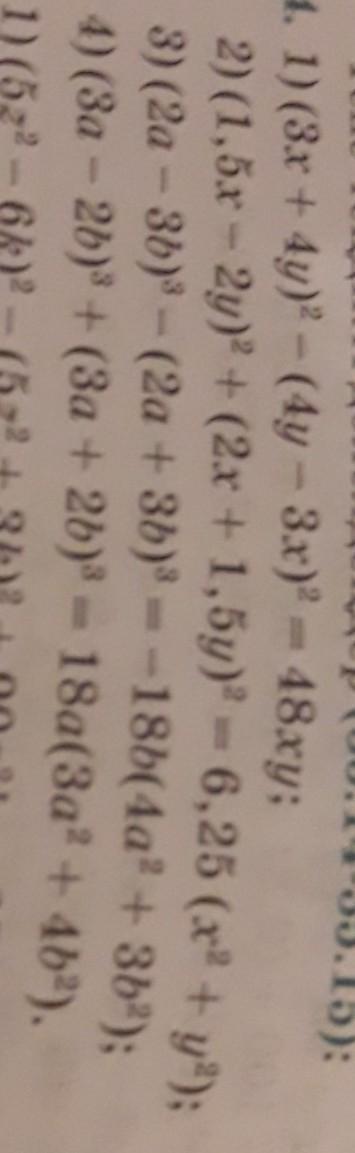 4. 1) (3x + 4y)² − (4y − 3x)² = 48xy;
2) (1,5x − 2y)² + (2x + 1,5y)² = 6,25 (x² + y²);
3) (2a − 3b)³ − (2a + 3b)³ = −18b(4a² + 3b²);
4) (3a − 2b)³ + (3a + 2b)³ = 18a(3a² + 4b²).
1) (5z² − 6k)² − (5z² + 3k)² +